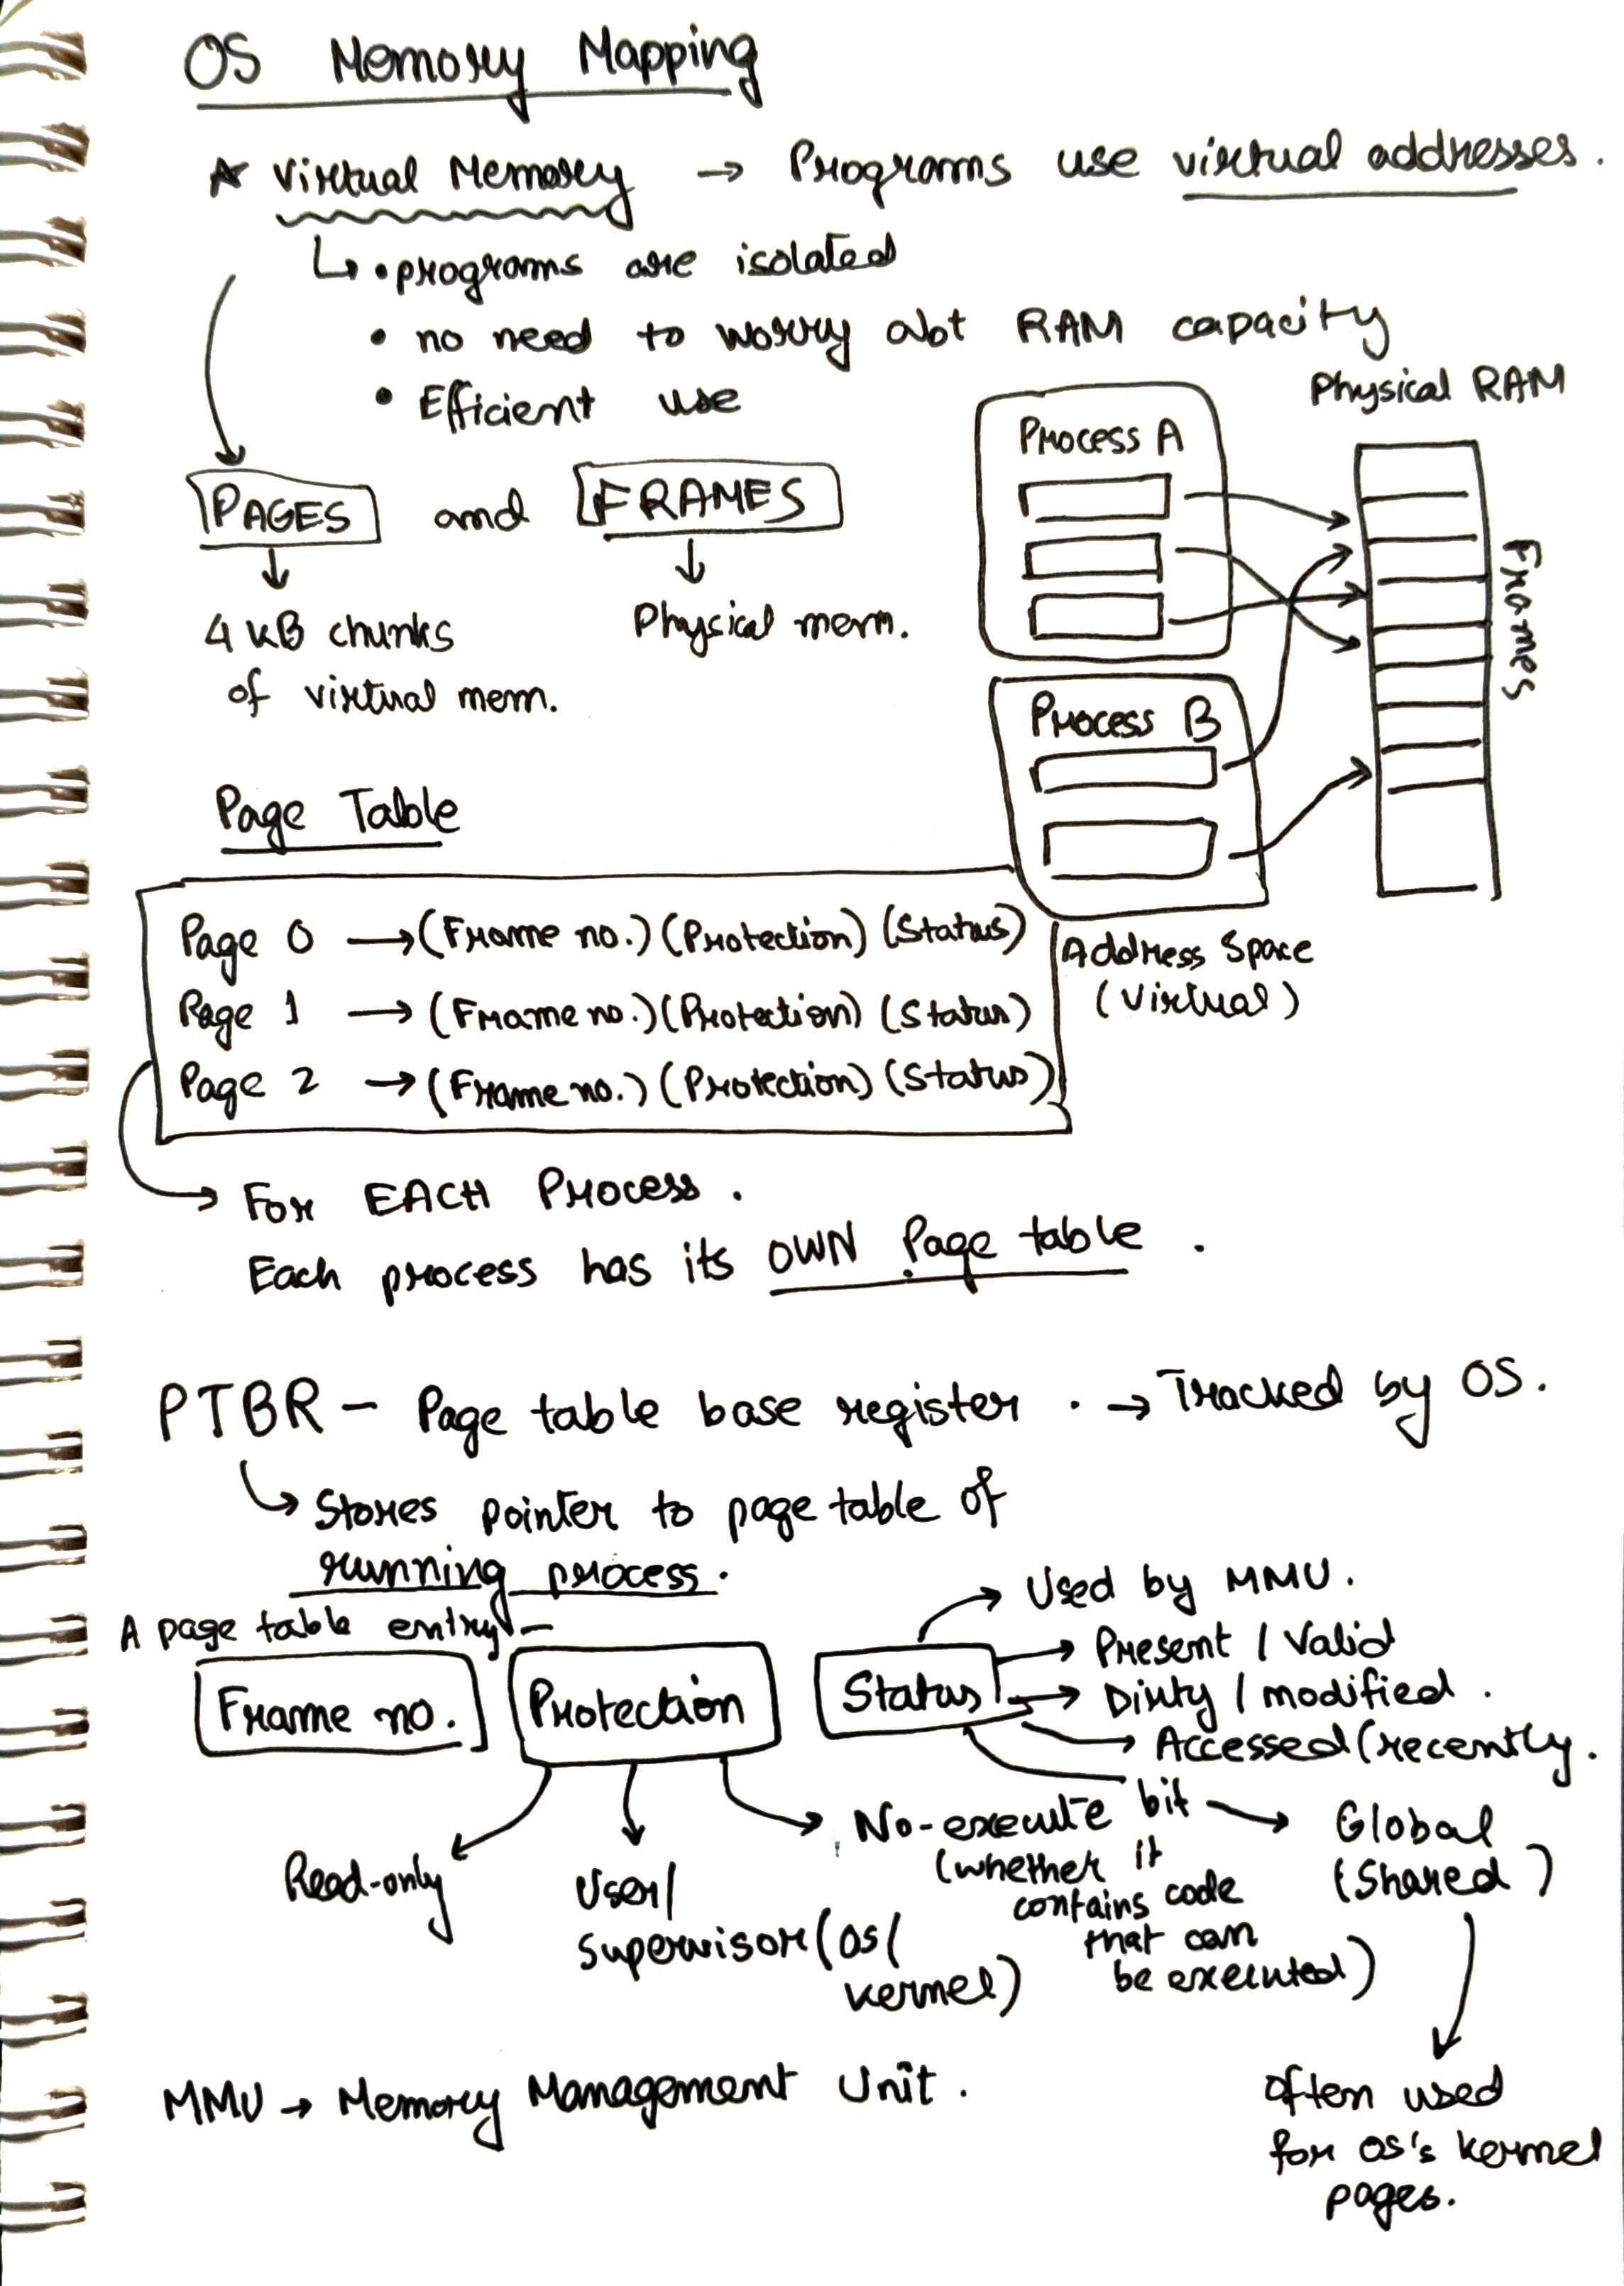 OS Memory Mapping
Virtual Memory → Programs use virtual addresses.
↳ • programs are isolated
• no need to worry abt RAM capacity
• Efficient use
Physical RAM
Process A
PAGES and FRAMES
Frames
4 KB chunks
of virtual mem.
Physical mem.
Process B
Page Table
Page 0 → (Frame no.) (Protection) (Status)
Page 1 → (Frame no.) (Protection) (Status)
Page 2 → (Frame no.) (Protection) (Status)
Address Space
(Virtual)
→ For EACH Process.
Each process has its OWN Page table.
PTBR - Page table base register. → Tracked by OS.
↳ Stores pointer to page table of
running process.
A page table entry -
Frame no.
Protection
Status
→ Used by MMU.
→ Present / Valid
→ Dirty / modified.
→ Accessed (recently.
Read-only
User/
Supervisor (OS/
kernel)
No-execute bit
(whether it
contains code
that can
be executed)
→ Global
(Shared)
often used
for OS's kernel
pages.
MMU → Memory Management Unit.